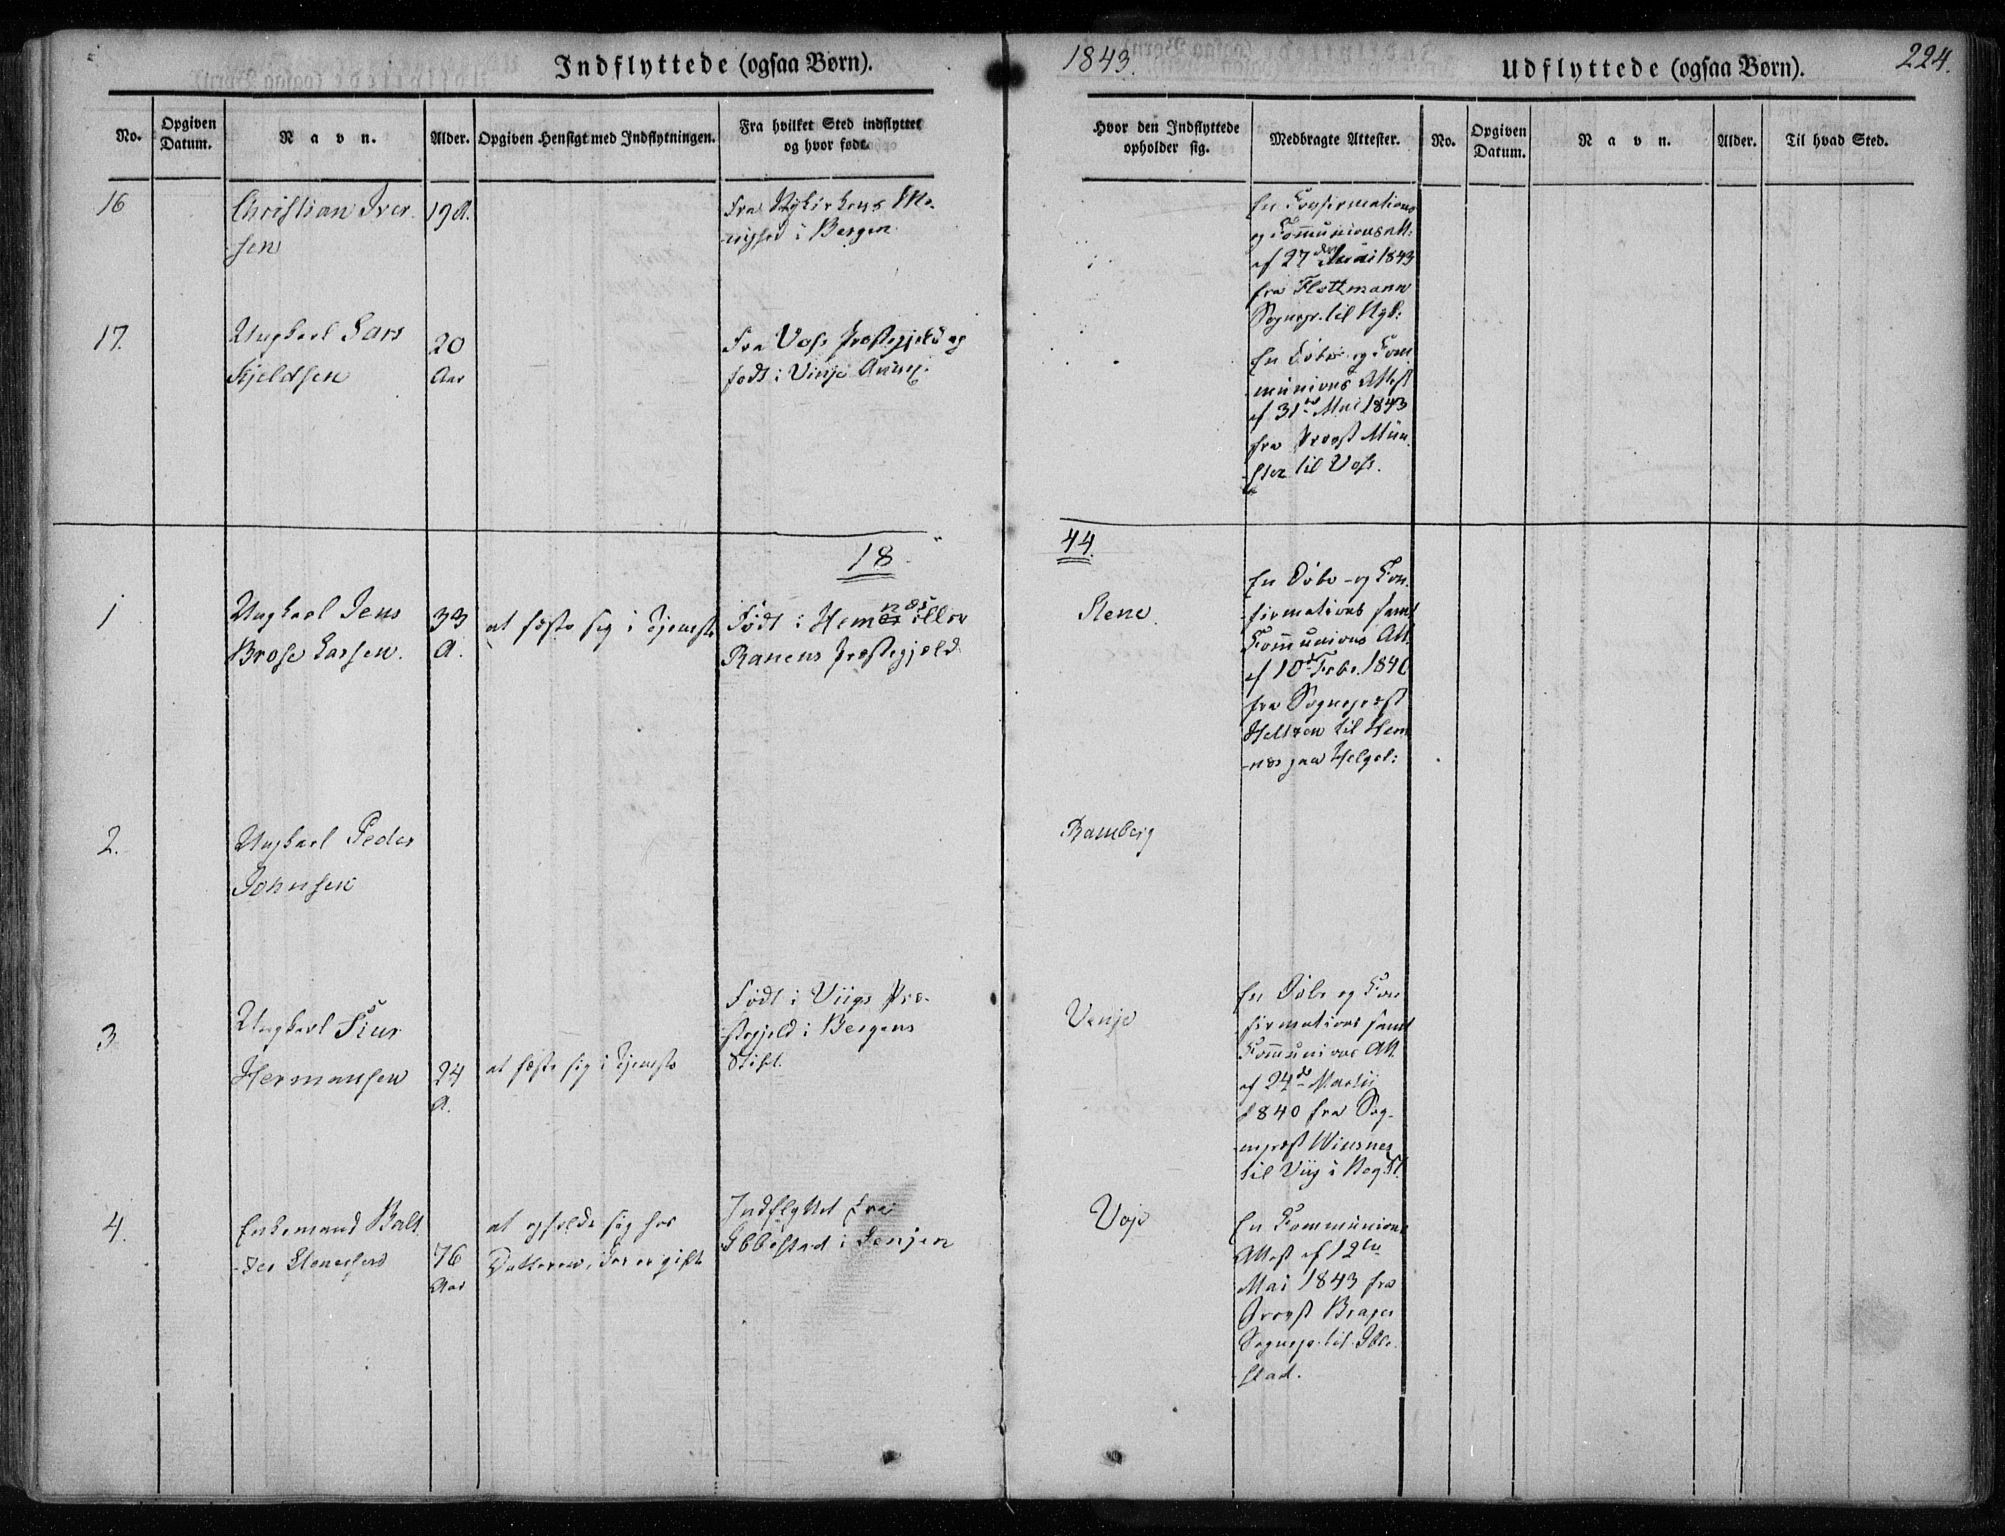 Indflyttede (ogsaa Børn).
1843.
Udflyttede (ogsaa Børn).
224.
No.
Opgiven Datum.
Navn.
Alder.
Opgiven Hensigt med Indflytningen.
Fra hvilket Sted indflyttet og hvor født.
Hvor den Indflyttede opholder sig.
Medbragte Attester.
No.
Opgiven Datum.
Navn.
Alder.
Til hvad Sted.
16
Christian Iver-
sen
19 A.
Fra Nykirkens Me-
nighed i Bergen
En Confirmations
og Communions Att:
af 27de
1843
fra Flottmann
Sognepr. til Nyk:
17.
Ungkarl Lars
Kjeldsen
20
Aar
Fra Voss Præstegjeld og
født i Vinje
En Døbe- og Com-
munions Attest
af 31te Mai 1843
fra Provst Mün-
ster til Voss.
1844.
1
Ungkarl Jens
Brose Larsen.
33
A.
at fæste sig i Tjeneste
Født i Hemnæs eller
Ranens Præstegjæld
Stene.
En Døbe- og Con-
firmations samt
Communions Att.
af 10de Febr. 184
fra Sognepræst
Heltzen til Hem-
næs paa Helgel:
2.
Ungkarl Peder
Johnsen
Ramberg
3
Ungkarl Siur
Hermansen
24
A.
at fæste sig i Tjeneste
Født i Viigs Præ-
stegjeld i Bergens
Stift.
Venje
En Døbe og Con-
firmations samt
Communions Att.
af 24de Martii
1840 fra Sog-
nepræst Wiesner
til Viig i Berg. St.
4.
Enkemand Balt-
zer Stenersen
76
Aar
at opholde sig hos
Datteren, der er gift
Indflyttet fra
Ibbestad i Senjen
Voje
En Communions
Attest af 12te
Mai 1843 fra
Provst
Sognepr. til Ibbe-
stad.